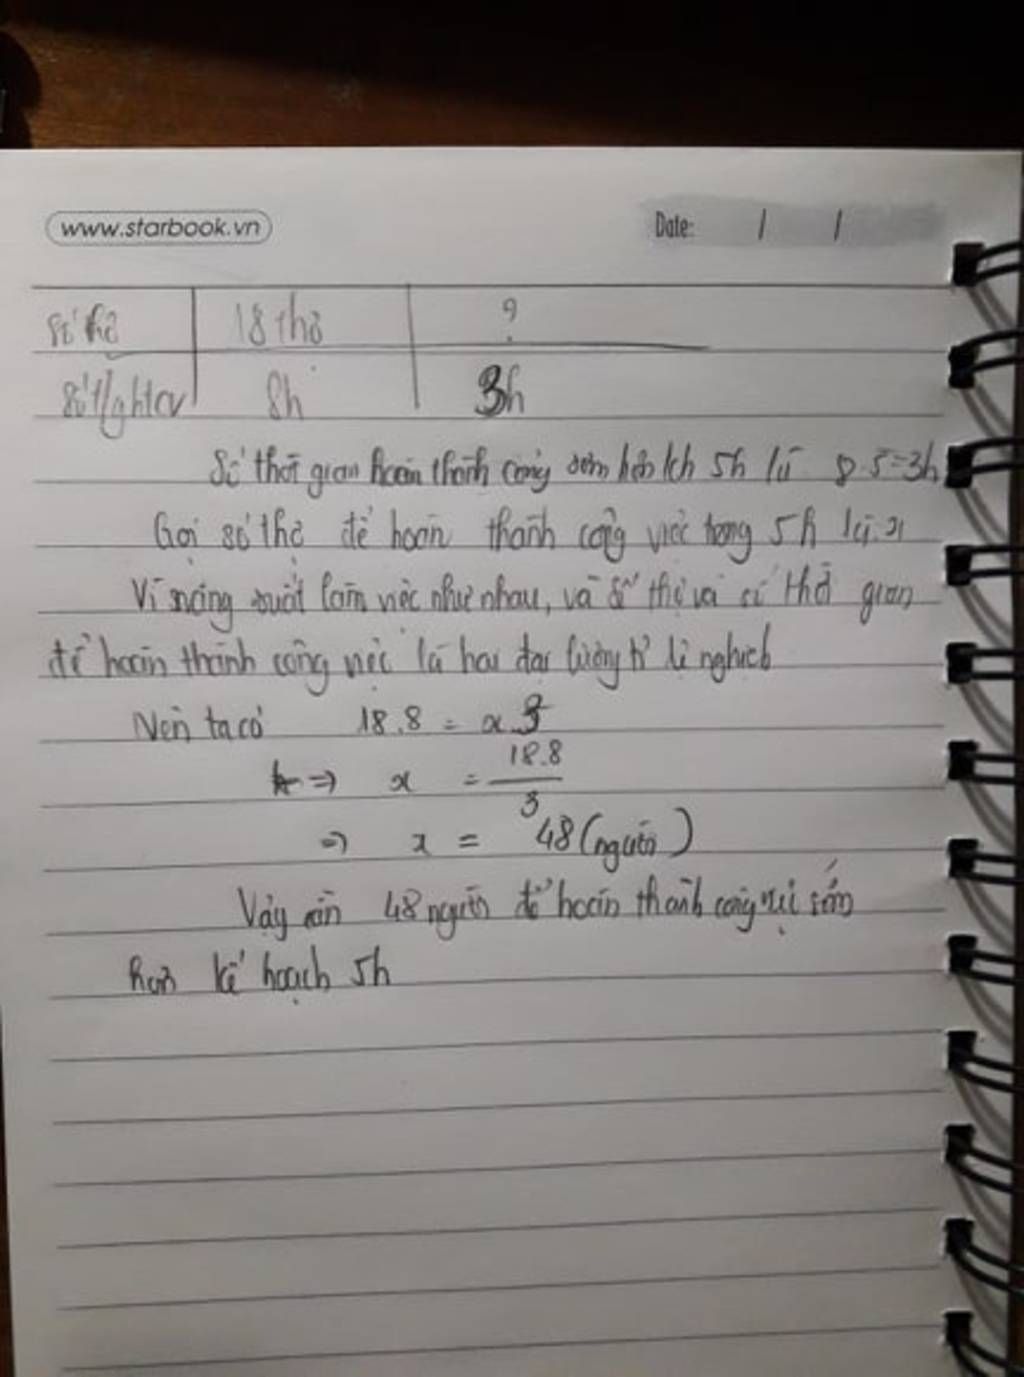 www.starbook.vn
Date: / /
số thợ 18 thợ ?
số t/g ht cv 8h 3h
Số thời gian hoàn thành công sớm hơn kh 5h là 8-5=3h
Gọi số thợ để hoàn thành công việc trong 5h là x
Vì năng suất làm việc như nhau, và số thợ và số thời gian
để hoàn thành công việc là hai đại lượng tỉ lệ nghịch
Nên ta có 18.8 = x.3
=> x = 18.8/3
=> x = 48 (người)
Vậy cần 48 người để hoàn thành công việc sớm
hơn kế hoạch 5h